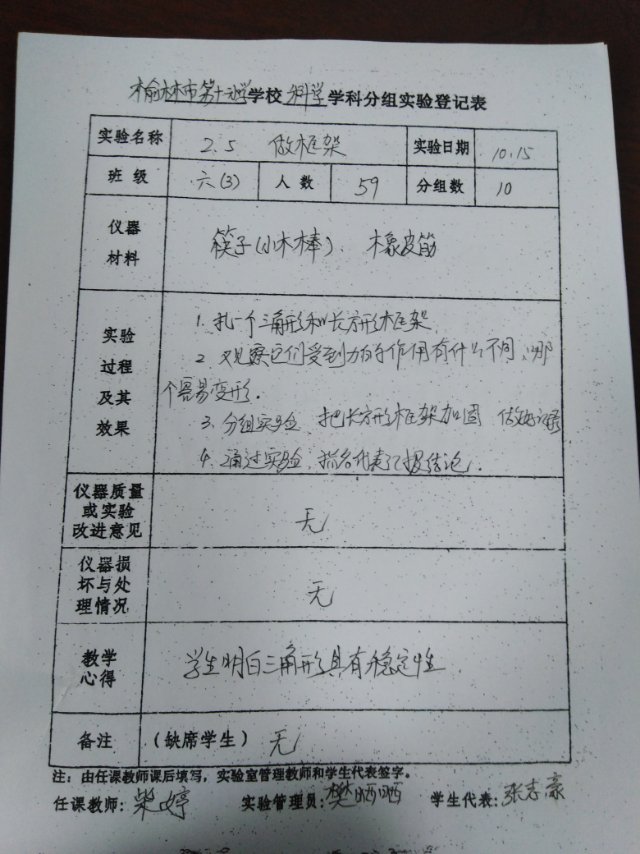 榆林市第十小学学校科学学科分组实验登记表
实验名称 2.5 做框架 实验日期 10.15
班级 六(3) 人数 59 分组数 10
仪器材料 筷子(小木棒)、橡皮筋
实验过程及其效果
1. 扎一个三角形和长方形框架
2. 观察它们受到力的作用有什么不同,哪
个容易变形.
3. 分组实验 把长方形框架加固 做好记录
4. 通过实验,指名代表汇报结论.
仪器质量或实验改进意见 无
仪器损坏与处理情况 无
教学心得 学生明白三角形具有稳定性
备注 (缺席学生) 无
注:由任课教师课后填写,实验室管理教师和学生代表签字。
任课教师:柴婷 实验管理员:樊晒晒 学生代表:张志豪